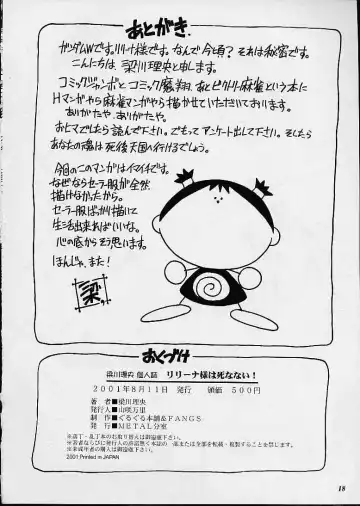 あとがき
ガンダムWです。リリーナ様です。なんで今頃？それは秘密です。
こんにちは、梁川理央と申します。
コミックジャンボとコミック魔翔、あとビクトリー麻雀という本に
Hマンガやら麻雀マンガやら描かせていただいております。
ありがたや、ありがたや。
おヒマでしたら読んで下さい。でもってアンケート出して下さい。そしたら
あなたの魂は死後天国へ行けるでしょう。
今回のこのマンガはイマイチです。
なぜならセーラー服が全然
描けなかったから。
セーラー服ばっかり描いて
生活出来ればいいな。
心の底からそう思います。
ほんじゃ、また！
梁
おくづけ
梁川理央 個人誌 リリーナ様は死なない！
2001年8月11日 発行 頒価 500円
著者■梁川理央
発行人■山咲万里
制作■ぐるぐる本舗&FANGS
発行■METAL分室
※落丁・乱丁本のお取り替えは御容赦下さい。
※著者ならびに発行人の許諾無く本誌の一部または全部を転載・複製することを禁じます。
※未成年者の購入は御遠慮下さい。
2001 Printed in JAPAN
18